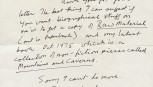 letter. The best thing I can suggest if
you want biographical stuff on
me is to get a copy of A Raw Material
(out in paperback) and my latest
book Oct 1975 which is a
collection of non-fiction pieces called
Mountains and Caverns.
Sorry I can't be more